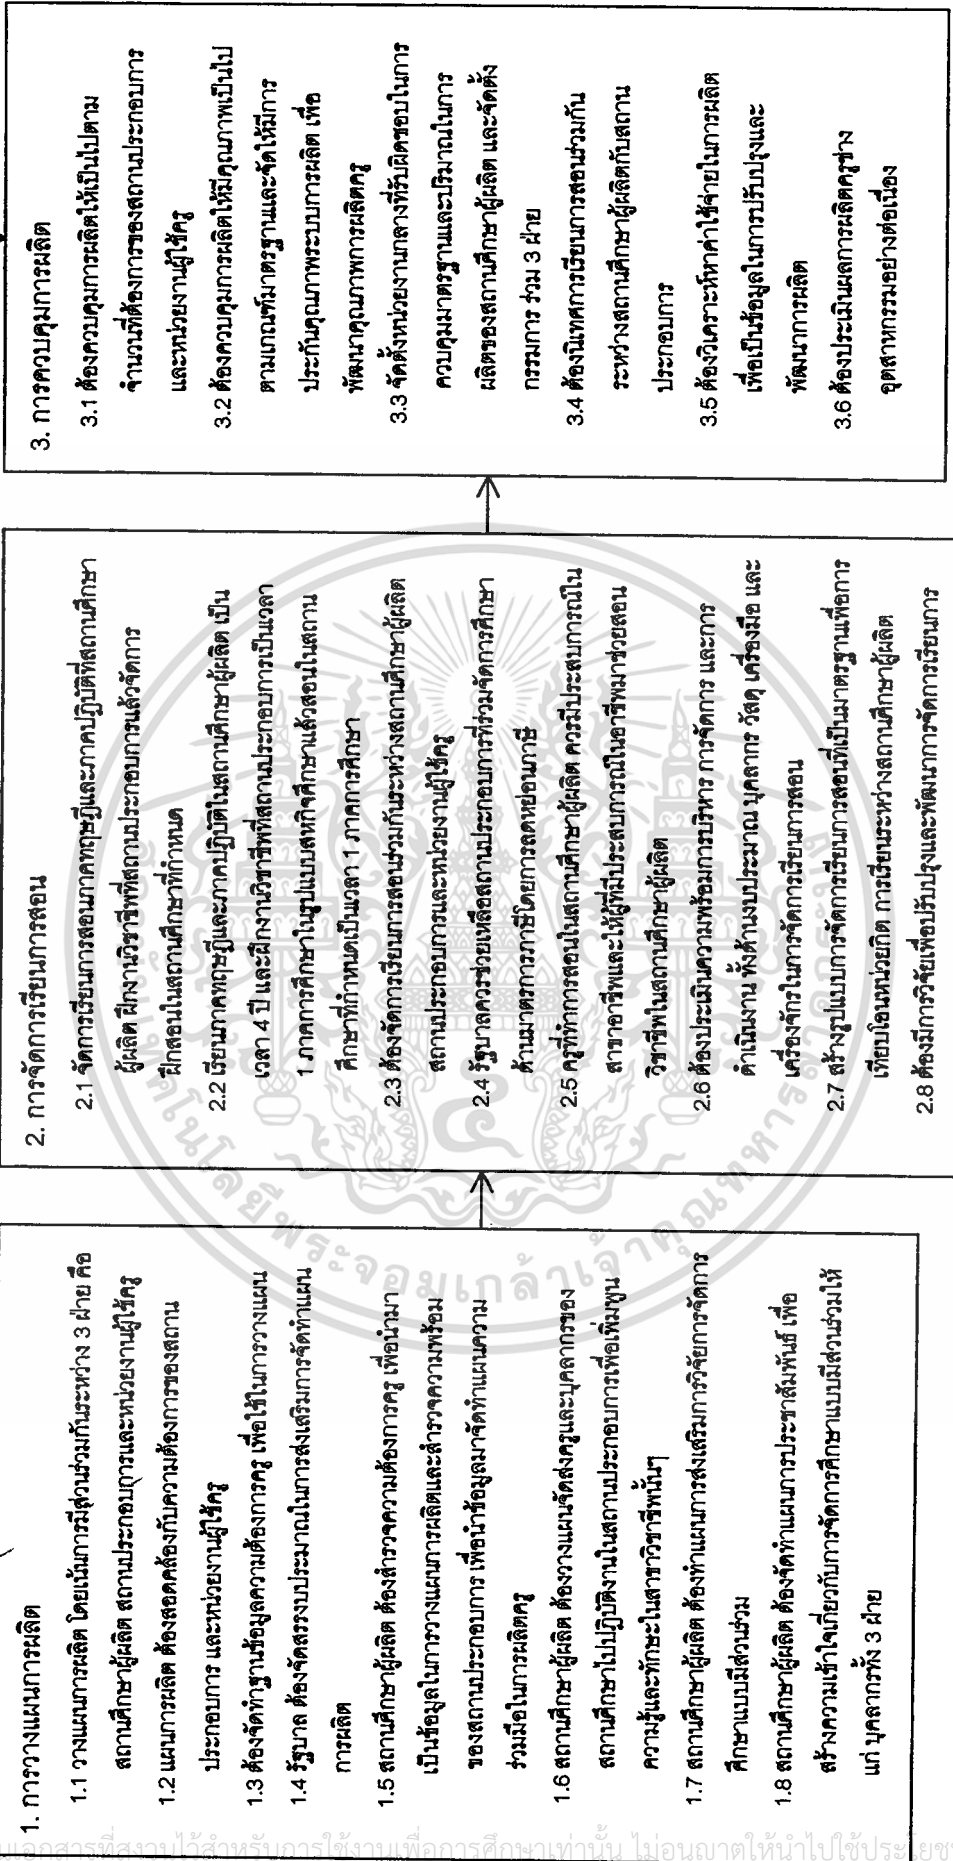 1. การวางแผนการผลิต
1.1 วางแผนการผลิต โดยเน้นการมีส่วนร่วมกันระหว่าง 3 ฝ่าย คือ
สถานศึกษาผู้ผลิต สถานประกอบการและหน่วยงานผู้ใช้ครู
1.2 แผนการผลิต ต้องสอดคล้องกับความต้องการของสถาน
ประกอบการ และหน่วยงานผู้ใช้ครู
1.3 ต้องจัดทำฐานข้อมูลความต้องการครู เพื่อใช้ในการวางแผน
1.4 รัฐบาล ต้องจัดสรรงบประมาณในการส่งเสริมการจัดทำแผน
การผลิต
1.5 สถานศึกษาผู้ผลิต ต้องสำรวจความต้องการครู เพื่อนำมา
เป็นข้อมูลในการวางแผนการผลิตและสำรวจความพร้อม
ของสถานประกอบการ เพื่อนำข้อมูลมาจัดทำแผนความ
ร่วมมือในการผลิตครู
1.6 สถานศึกษาผู้ผลิต ต้องวางแผนจัดส่งครูและบุคลากรของ
สถานศึกษาไปปฏิบัติงานในสถานประกอบการเพื่อเพิ่มพูน
ความรู้และทักษะในสาขาวิชาชีพนั้นๆ
1.7 สถานศึกษาผู้ผลิต ต้องทำแผนการส่งเสริมการวิจัยการจัดการ
ศึกษาแบบมีส่วนร่วม
1.8 สถานศึกษาผู้ผลิต ต้องจัดทำแผนการประชาสัมพันธ์ เพื่อ
สร้างความเข้าใจเกี่ยวกับการจัดการศึกษาแบบมีส่วนร่วมให้
แก่ บุคลากรทั้ง 3 ฝ่าย
2. การจัดการเรียนการสอน
2.1 จัดการเรียนการสอนภาคทฤษฎีและภาคปฏิบัติที่สถานศึกษา
ผู้ผลิต ฝึกงานวิชาชีพที่สถานประกอบการแล้วจัดการ
ฝึกสอนในสถานศึกษาที่กำหนด
2.2 เรียนภาคทฤษฎีและภาคปฏิบัติในสถานศึกษาผู้ผลิต เป็น
เวลา 4 ปี และฝึกงานวิชาชีพที่สถานประกอบการเป็นเวลา
1 ภาคการศึกษาในรูปแบบสหกิจศึกษาแล้วสอนในสถาน
ศึกษาที่กำหนดเป็นเวลา 1 ภาคการศึกษา
2.3 ต้องจัดการเรียนการสอนร่วมกันระหว่างสถานศึกษาผู้ผลิต
สถานประกอบการและหน่วยงานผู้ใช้ครู
2.4 รัฐบาลควรช่วยเหลือสถานประกอบการที่ร่วมจัดการศึกษา
ด้านมาตรการภาษีโดยการลดหย่อนภาษี
2.5 ครูที่ทำการสอนในสถานศึกษาผู้ผลิต ควรมีประสบการณ์ใน
สาขาอาชีพและให้ผู้ที่มีประสบการณ์ในอาชีพมาช่วยสอน
วิชาชีพในสถานศึกษาผู้ผลิต
2.6 ต้องประเมินความพร้อมการบริหาร การจัดการ และการ
ดำเนินงาน ทั้งด้านงบประมาณ บุคลากร วัสดุ เครื่องมือ และ
เครื่องจักรในการจัดการเรียนการสอน
2.7 สร้างรูปแบบการจัดการเรียนการสอนที่เป็นมาตรฐานเพื่อการ
เทียบโอนหน่วยกิต การเรียนระหว่างสถานศึกษาผู้ผลิต
2.8 ต้องมีการวิจัยเพื่อปรับปรุงและพัฒนาการจัดการเรียนการ
3. การควบคุมการผลิต
3.1 ต้องควบคุมการผลิตให้เป็นไปตาม
จำนวนที่ต้องการของสถานประกอบการ
และหน่วยงานผู้ใช้ครู
3.2 ต้องควบคุมการผลิตให้มีคุณภาพเป็นไป
ตามเกณฑ์มาตรฐานและจัดให้มีการ
ประกันคุณภาพระบบการผลิต เพื่อ
พัฒนาคุณภาพการผลิตครู
3.3 จัดตั้งหน่วยงานกลางที่รับผิดชอบในการ
ควบคุมมาตรฐานและปริมาณในการ
ผลิตของสถานศึกษาผู้ผลิต และจัดตั้ง
กรรมการ ร่วม 3 ฝ่าย
3.4 ต้องนิเทศการเรียนการสอนร่วมกัน
ระหว่างสถานศึกษาผู้ผลิตกับสถาน
ประกอบการ
3.5 ต้องวิเคราะห์หาค่าใช้จ่ายในการผลิต
เพื่อเป็นข้อมูลในการปรับปรุงและ
พัฒนาการผลิต
3.6 ต้องประเมินผลการผลิตครูช่าง
อุตสาหกรรมอย่างต่อเนื่อง
เอกสารที่สงวนไว้สำหรับการใช้งานเพื่อการศึกษาเท่านั้น ไม่อนุญาตให้นำไปใช้ประโยช
พระจอมเกล้าเจ้าคุณทหาร